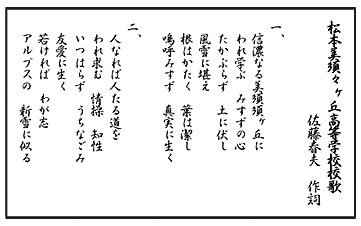 松本美須々ヶ丘高等学校校歌
佐藤春夫 作詞
一、
信濃なる美須須ヶ丘に
われ学ぶ みすずの心
たかぶらず 土に伏し
風雪に堪え
根はかたく 葉は潔し
嗚呼みすず 真実に生く
二、
人なれば人たる道を
われ求む 情操 知性
いつはらず うちなごみ
友愛に生く
若ければ わが志
アルプスの 新雪に似る